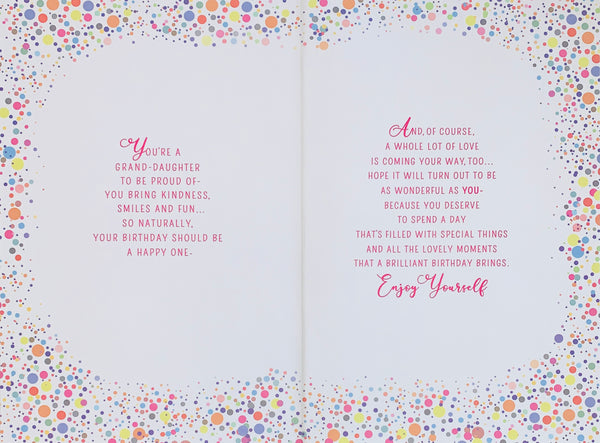 You're a
GRAND-DAUGHTER
TO BE PROUD OF-
YOU BRING KINDNESS,
SMILES AND FUN...
SO NATURALLY,
YOUR BIRTHDAY SHOULD BE
A HAPPY ONE-
AND, OF COURSE,
A WHOLE LOT OF LOVE
IS COMING YOUR WAY, TOO...
HOPE IT WILL TURN OUT TO BE
AS WONDERFUL AS YOU-
BECAUSE YOU DESERVE
TO SPEND A DAY
THAT'S FILLED WITH SPECIAL THINGS
AND ALL THE LOVELY MOMENTS
THAT A BRILLIANT BIRTHDAY BRINGS.
Enjoy Yourself